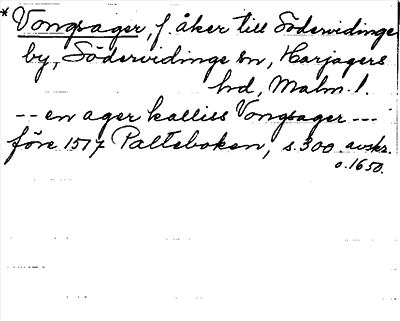 *Vongsager, f. åker till Södervidinge
by, Södervidinge sn, Harjagers
hd, Malm. l.
-- en ager kalliss Vongsager ---
före 1517 Palteboken, s. 300 avskr.
o. 1650.